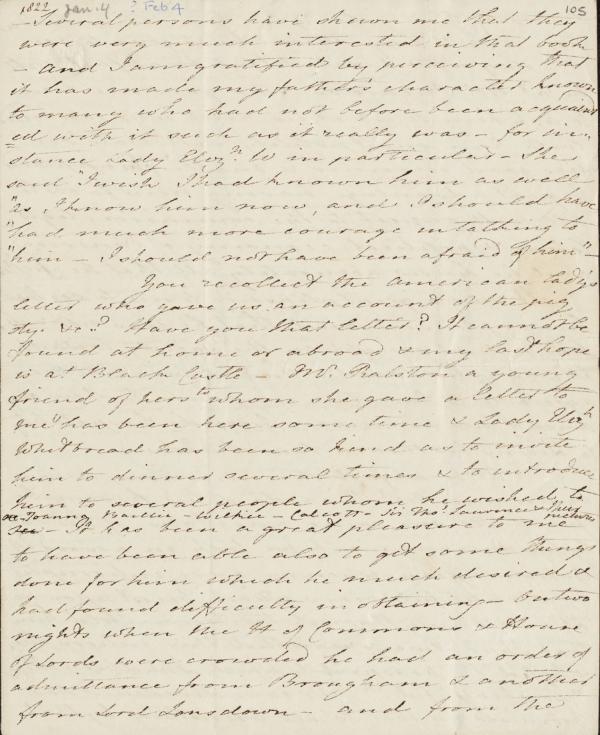 1822 Jan. 4 ? Feb 4 105
– Several persons have shewn me that they
were very much interested in that book
– and I am gratified by perceiving that
it has made my father's character known
to many who had not before been acquaint
=ed with it such as it really was – for in-
stance Lady Elizth. W in particular – She
said "I wish I had known him as well
"as I know him now, and I should have
"had much more courage in talking to
"him – I should not have been afraid of him" –
You recollect the American lady's
letter who gave us an account of the pig
sty &c? Have you that letter? It cannot be
found at home or abroad & my last hope
is at Black Castle – Mr. Ralston a young
friend of hers to whom she gave a letter to
me has been here some time & Lady Elizth
Whitbread has been so kind as to invite
him to dinner several times & to introduce
him to several people whom he wished to
see – Joanna Baillie – Wilkie – Calcott – Sir Thos. Lawrence & their pictures
– It has been a great pleasure to me
to have been able also to get some things
done for him which he much desired &
had found difficulty in obtaining – on two
nights when the H of Commons & House
of Lords were crowded he had an order of
admittance from Brougham & another
from Lord Lansdown – and from the